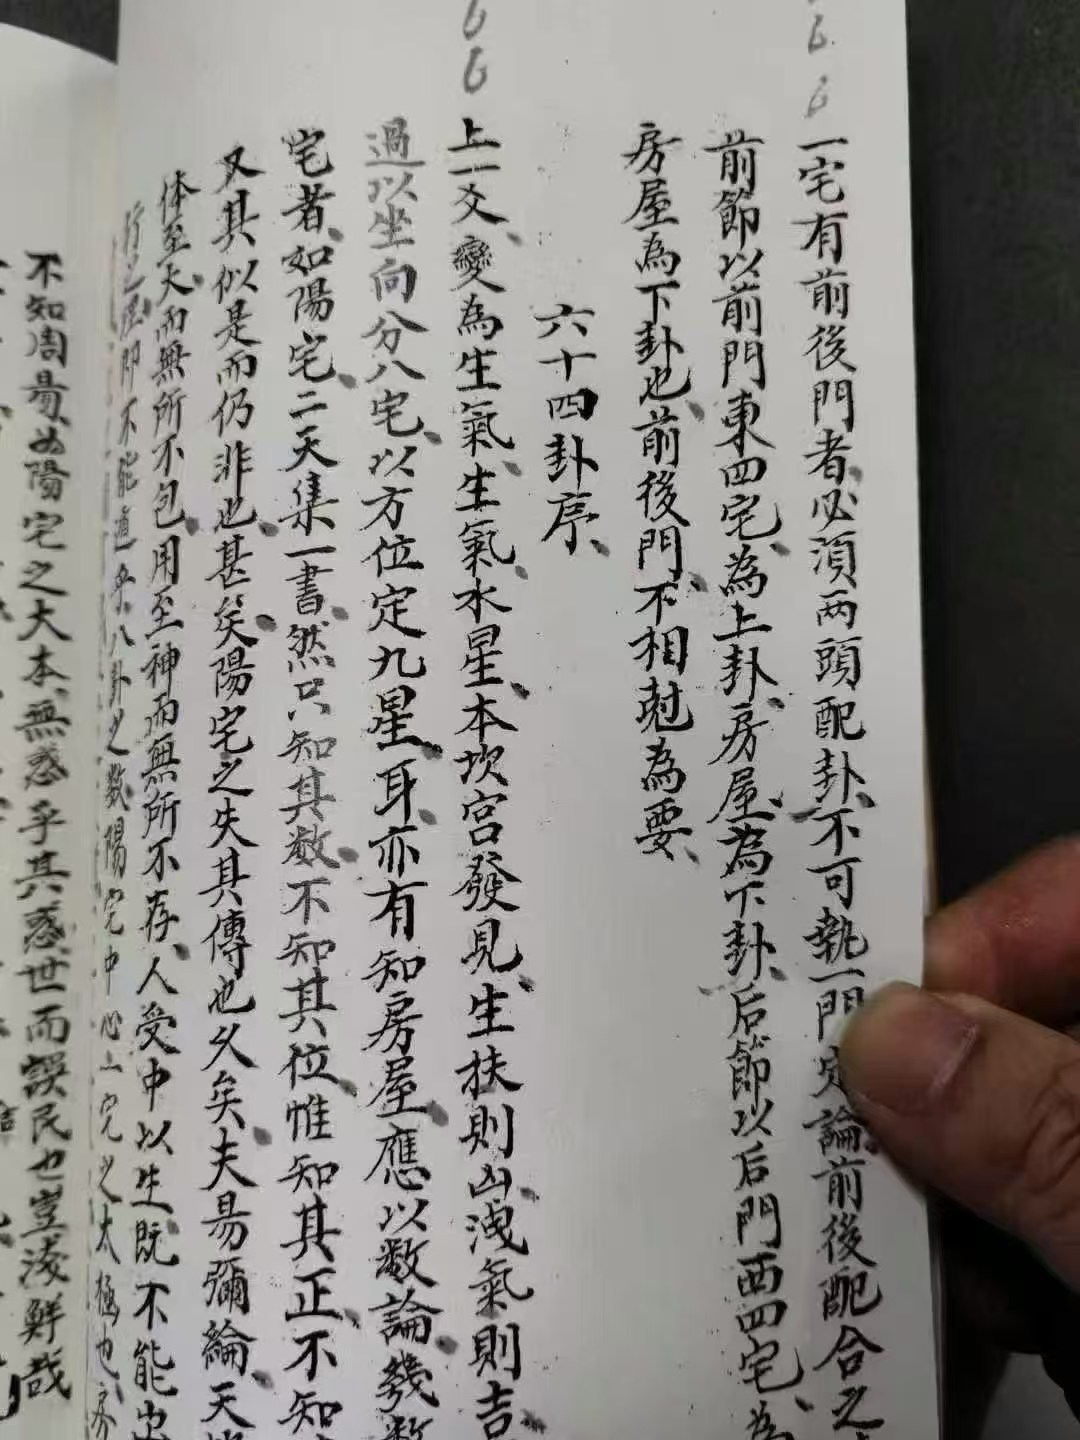 一宅有前後門者、必須两頭配卦、不可執一門定論前後配合之
前節以前門東四宅、為上卦、房屋、為下卦、后節以后門西四宅、為
房屋為下卦也、前後門、不相尅為要、
六十四卦序、
上一爻、變為生氣、生氣水星、本坎宮發見、生扶則凶、洩氣則吉、
過以坐向分八宅、以方位定九星、耳、亦有知房屋、應以数論、幾数
宅者、如陽宅、二天集一書、然只知其数、不知其位、惟知其正、不知
又其似是而仍非也、甚矣、陽宅之失其傳也久矣、夫易彌綸、天
体至大、而無所不包、用至神而無所不存、人受中以生、既不能出
即不能道乎八卦之数、陽宅中心一宅之太極也、
不知周易、如陽宅之大本、無惑乎其惑世而誤民也豈淺鮮哉